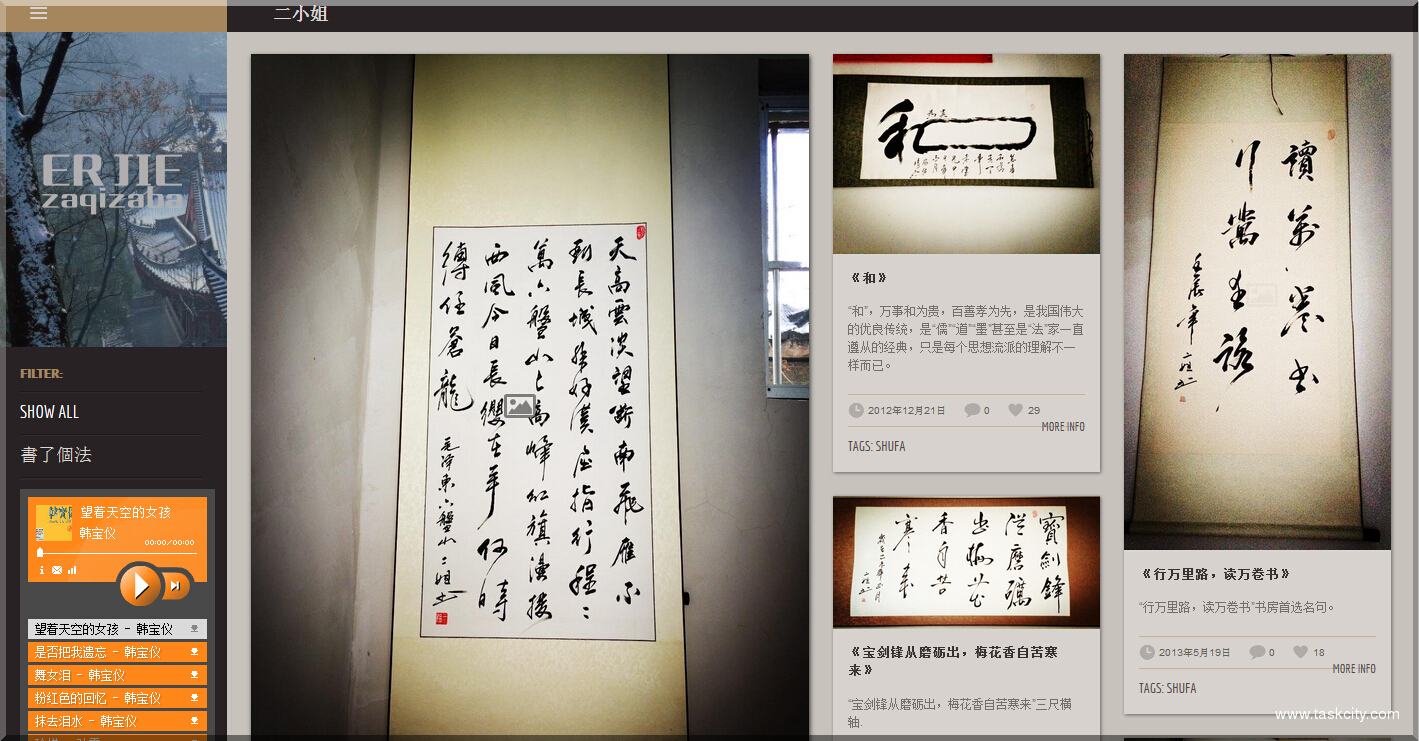 二小姐
ER JIE
zaqizaba
FILTER:
SHOW ALL
書了個法
望着天空的女孩
韩宝仪
00:00/00:00
望着天空的女孩 - 韩宝仪
是否把我遗忘 - 韩宝仪
舞女泪 - 韩宝仪
粉红色的回忆 - 韩宝仪
抹去泪水 - 韩宝仪
天高雲淡望斷南飛雁不
到長城非好漢屈指行程二
萬六盤山上高峰紅旗漫捲
西風今日長纓在手何時
縛住蒼龍
毛澤東六盤山二姐書
和
《和》
“和”，万事和为贵，百善孝为先，是我国伟大
的优良传统，是“儒”“道”“墨”甚至是“法”家一直
遵从的经典，只是每个思想流派的理解不一
样而已。
2012年12月21日 0 29
MORE INFO
TAGS: SHUFA
寶劍鋒
從磨礪
出梅花
香自苦
寒來
《宝剑锋从磨砺出，梅花香自苦寒
来》
“宝剑锋从磨砺出，梅花香自苦寒来”三尺横
轴.
讀萬卷書
行萬里路
壬辰年二姐
《行万里路，读万卷书》
“行万里路，读万卷书”书房首选名句。
2013年5月19日 0 18
MORE INFO
TAGS: SHUFA
www.taskcity.com